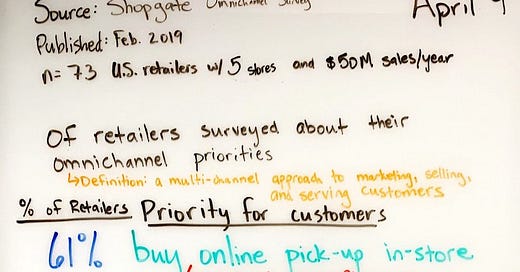 Source: Shopgate Omnichannel Survey
April 9
Published: Feb. 2019
n= 73 U.S. retailers w/ 5 stores and $50M sales/year
Of retailers surveyed about their
omnichannel priorities
↳Definition: a multi-channel approach to marketing, selling,
and serving customers
% of Retailers Priority for customers
61% buy online pick-up in-store